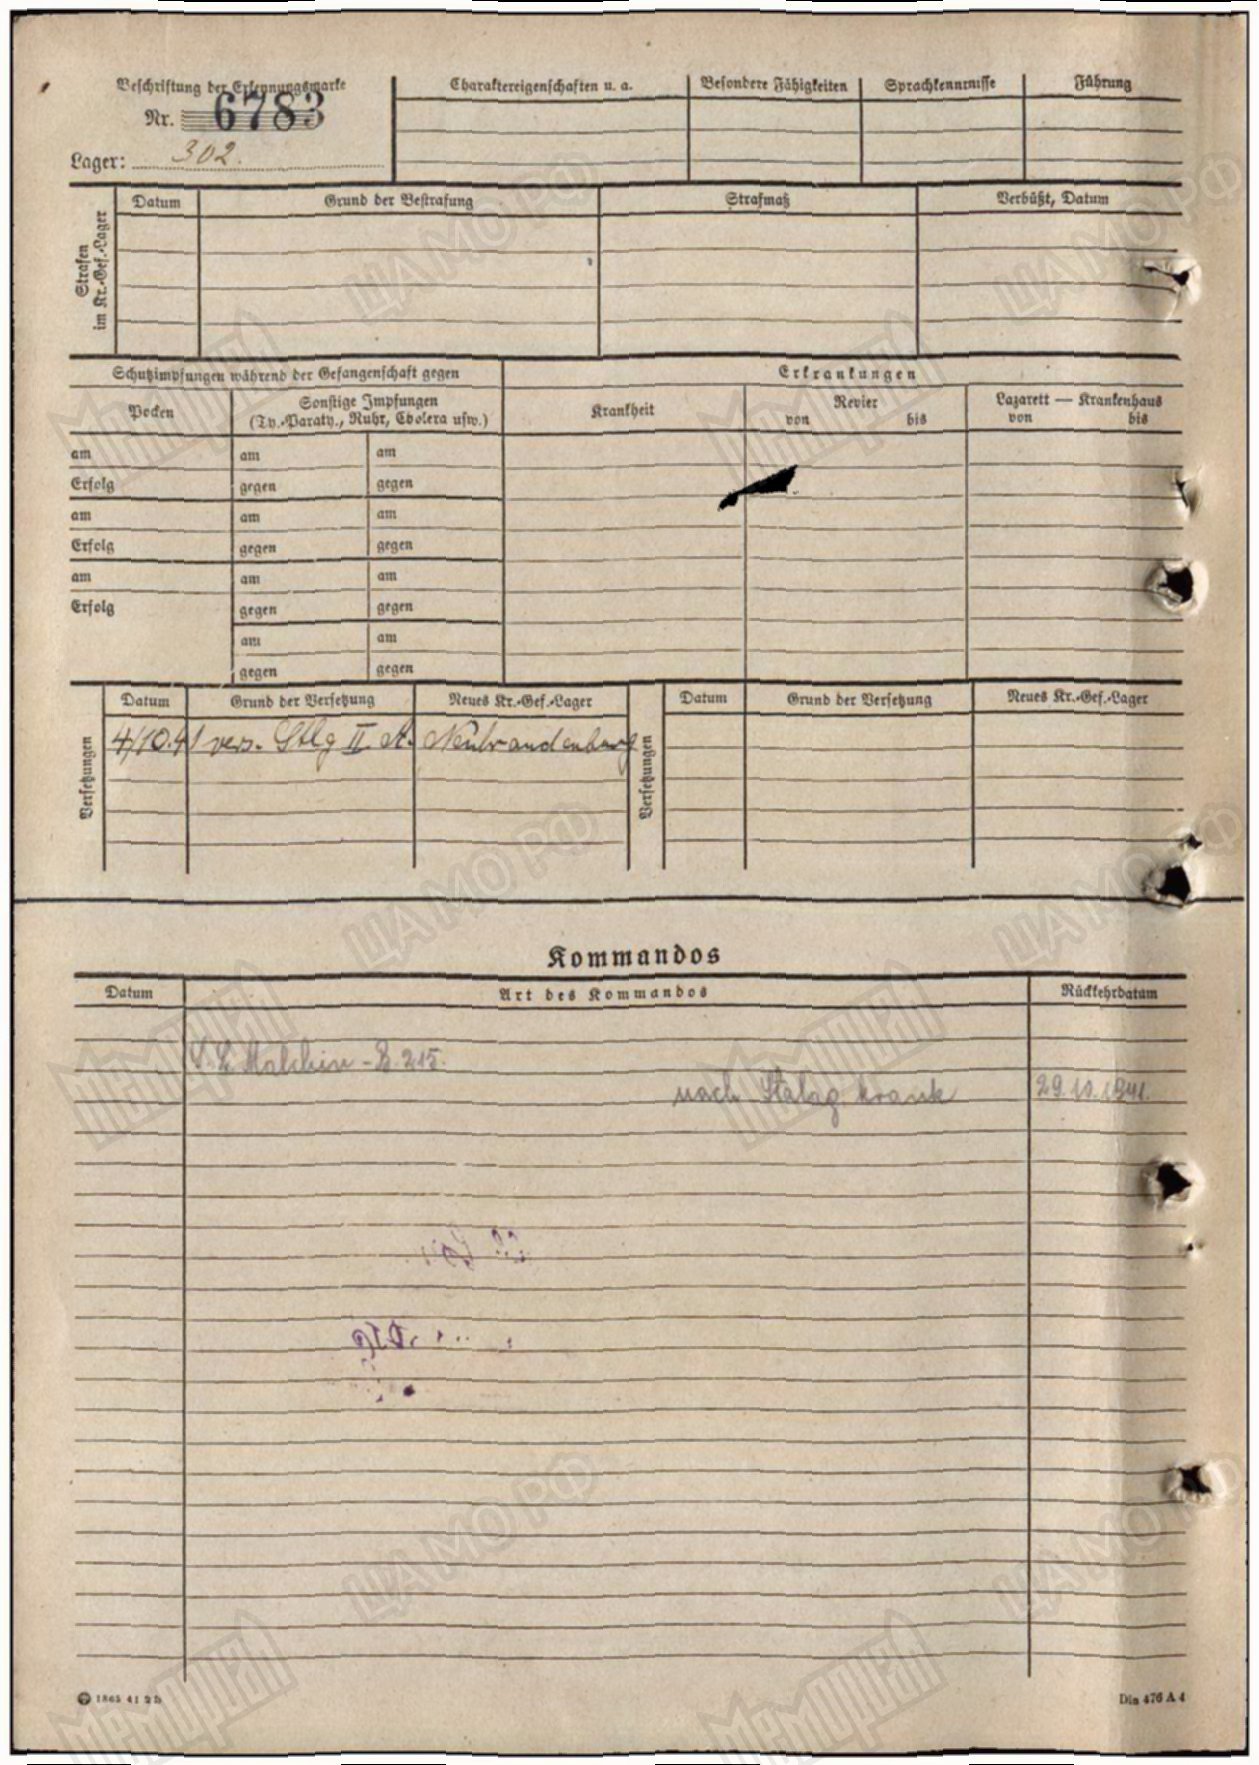 Beschriftung der Erkennungsmarke
Nr. 6783
Lager: 302.
Charaktereigenschaften u. a.
Besondere Fähigkeiten
Sprachkenntnisse
Führung
Strafen im Kr.-Gef.-Lager
Datum
Grund der Bestrafung
Strafmaß
Verbüßt, Datum
Schutzimpfungen während der Gefangenschaft gegen
Erkrankungen
Pocken
Sonstige Impfungen
(Ty.-Paraty., Ruhr, Cholera usw.)
Krankheit
Revier
von bis
Lazarett — Krankenhaus
von bis
am am am
Erfolg gegen gegen
am am am
Erfolg gegen gegen
am am am
Erfolg gegen gegen
am am
gegen gegen
Versetzungen
Datum Grund der Versetzung Neues Kr.-Gef.-Lager
4/10.41 vers. Stlg II A. Neubrandenburg
Versetzungen
Datum Grund der Versetzung Neues Kr.-Gef.-Lager
Kommandos
Datum Art des Kommandos Rückkehrdatum
Malchin - B. 215.
nach Stalag krank 29.10.1941.
1865 41 2 b
Din 476 A 4
Мемориал
ЦАМО РФ